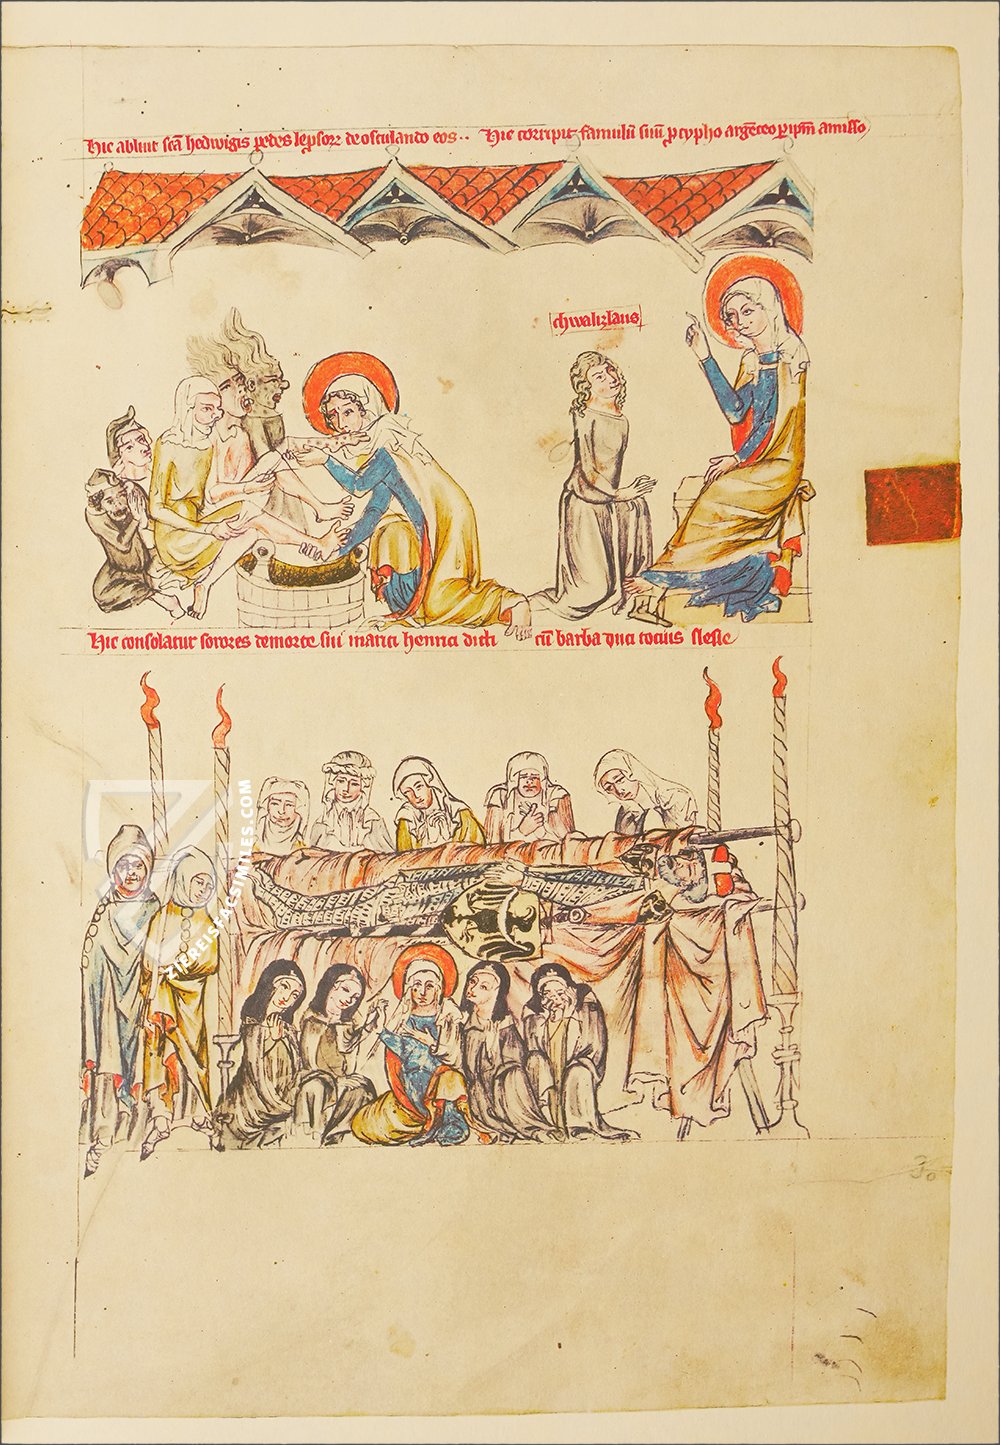 Hic abluit scā hedwigis pedes leprosorꝝ deosculando eos ·· Hic corripit famulū suū ꝓ cypho argēteo ꝑ ip̄m amisso
chwalizlaus
Hic consolatur sorores de morte sui mariti henrici dicti cū barba ducis tocius slesie
ZIEREISFACSIMILES.COM